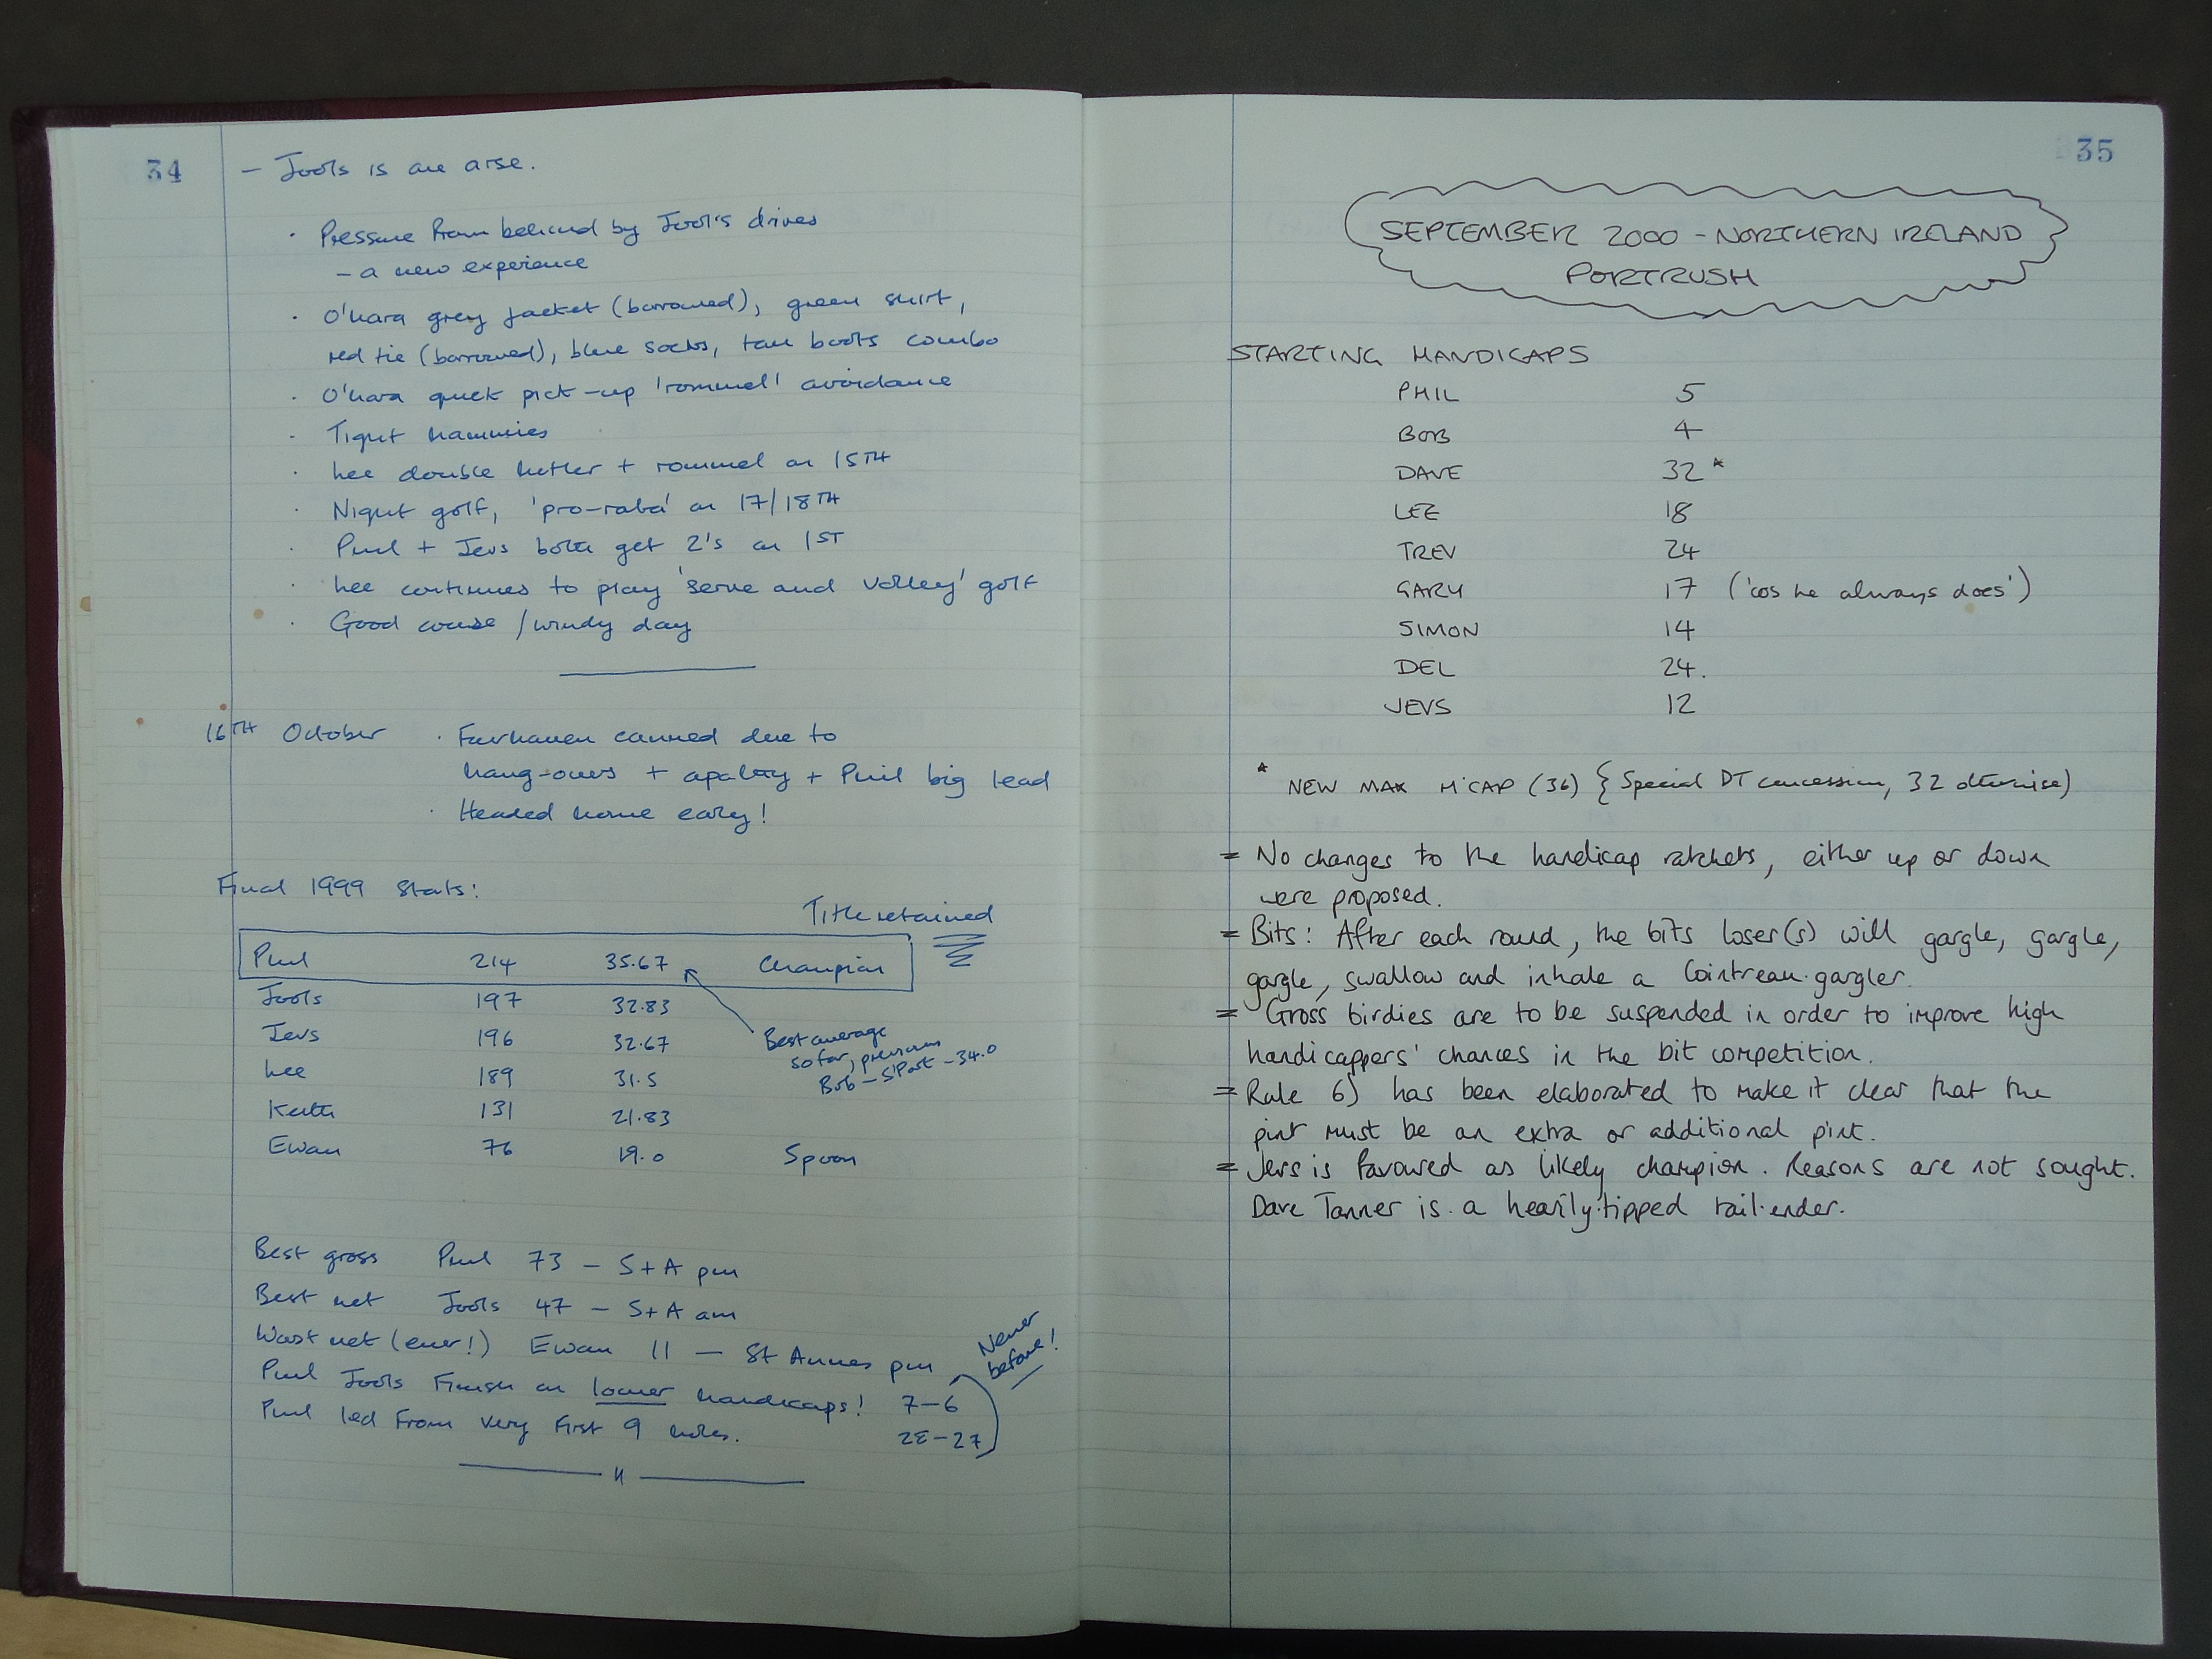 34
– Jools is an arse.
· Pressure from behind by Jool's drives
– a new experience
· O'hara grey jacket (borrowed), green shirt,
red tie (borrowed), blue socks, tan boots combo
· O'hara quick pick-up 'rommel' avoidance
· Tight hammies
· Lee double hitler + rommel on 15TH
· Night golf, 'pro-rata' on 17/18TH
· Phil + Jevs both get 2's on 1ST
· Lee continues to play 'serve and volley' golf
· Good course / windy day
16TH October · Fairhaven canned due to
hang-overs + apathy + Phil big lead
· Headed home early!
Final 1999 Stats:
Title retained
Phil 214 35.67 Champion
Jools 197 32.83
Jevs 196 32.67
Lee 189 31.5
Keith 131 21.83
Ewan 76 19.0 Spoon
Best average
so far, previous
Bob – S'Port – 34.0
Best gross Phil 73 – S+A pm
Best net Jools 47 – S+A am
Worst net (ever!) Ewan 11 – St Annes pm
Phil Jools finish on lower handicaps! 7–6
28–27
Never
before!
Phil led from very first 9 holes.
35
SEPTEMBER 2000 – NORTHERN IRELAND
PORTRUSH
STARTING HANDICAPS
PHIL 5
BOB 4
DAVE 32 *
LEE 18
TREV 24
GARY 17 ('cos he always does')
SIMON 14
DEL 24.
JEVS 12
* NEW MAX H'CAP (36) { Special DT concession, 32 otherwise)
= No changes to the handicap ratchets, either up or down
were proposed.
= Bits: After each round, the bits loser(s) will gargle, gargle,
gargle, swallow and inhale a Cointreau·gargler.
= Gross birdies are to be suspended in order to improve high
handicappers' chances in the bit competition.
= Rule 6) has been elaborated to make it clear that the
pint must be an extra or additional pint.
= Jevs is favoured as likely champion. Reasons are not sought.
Dave Tanner is a heavily·tipped tail·ender.